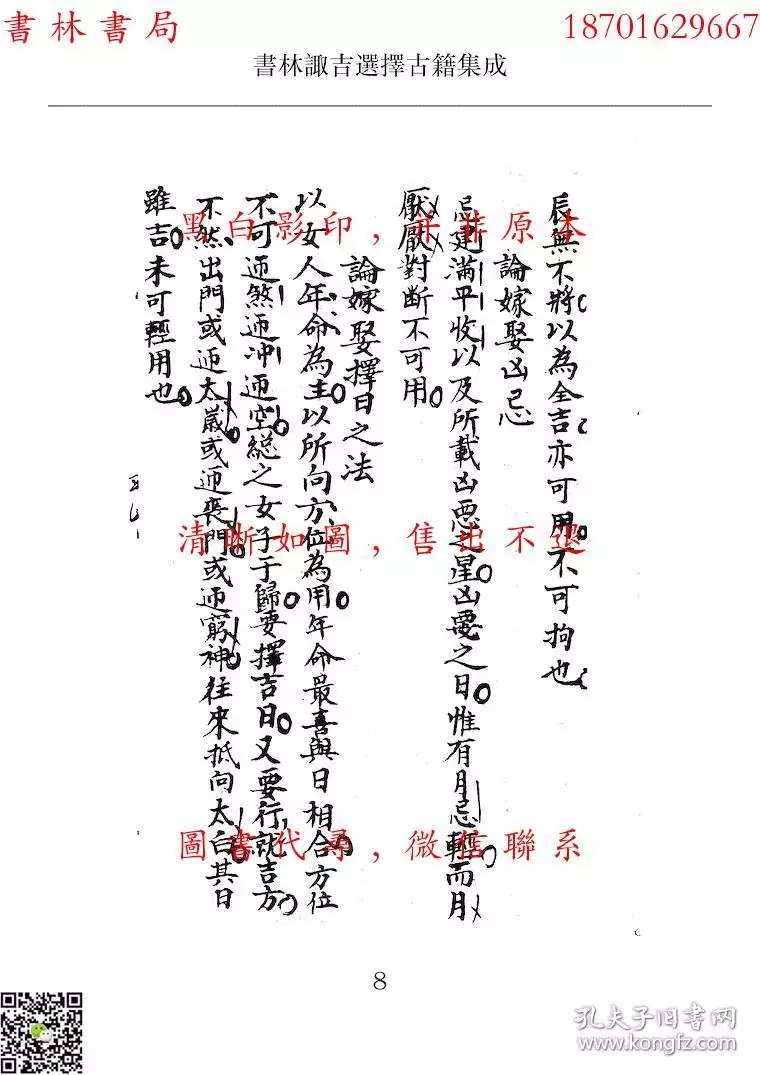 書林書局
18701629667
書林諏吉選擇古籍集成
辰無不將以為全吉亦可用不可拘也
論嫁娶凶忌
忌建滿平收以及所載凶惡之星凶要之日惟有月忌輕而月
厭厭對斷不可用
論嫁娶擇日之法
以女人年命為主以所向方位為用年命最喜與日相合方位
不可逦煞逦冲逦空總之女子于歸要擇吉日又要行就吉方
不然出門或逦太歲或逦喪門或逦窮神往來抵向太白其日
雖吉未可輕用也
黑白影印，并非原本
清晰如圖，售出不退
圖書代尋，微信聯系
8
孔夫子旧书网
www.kongfz.com